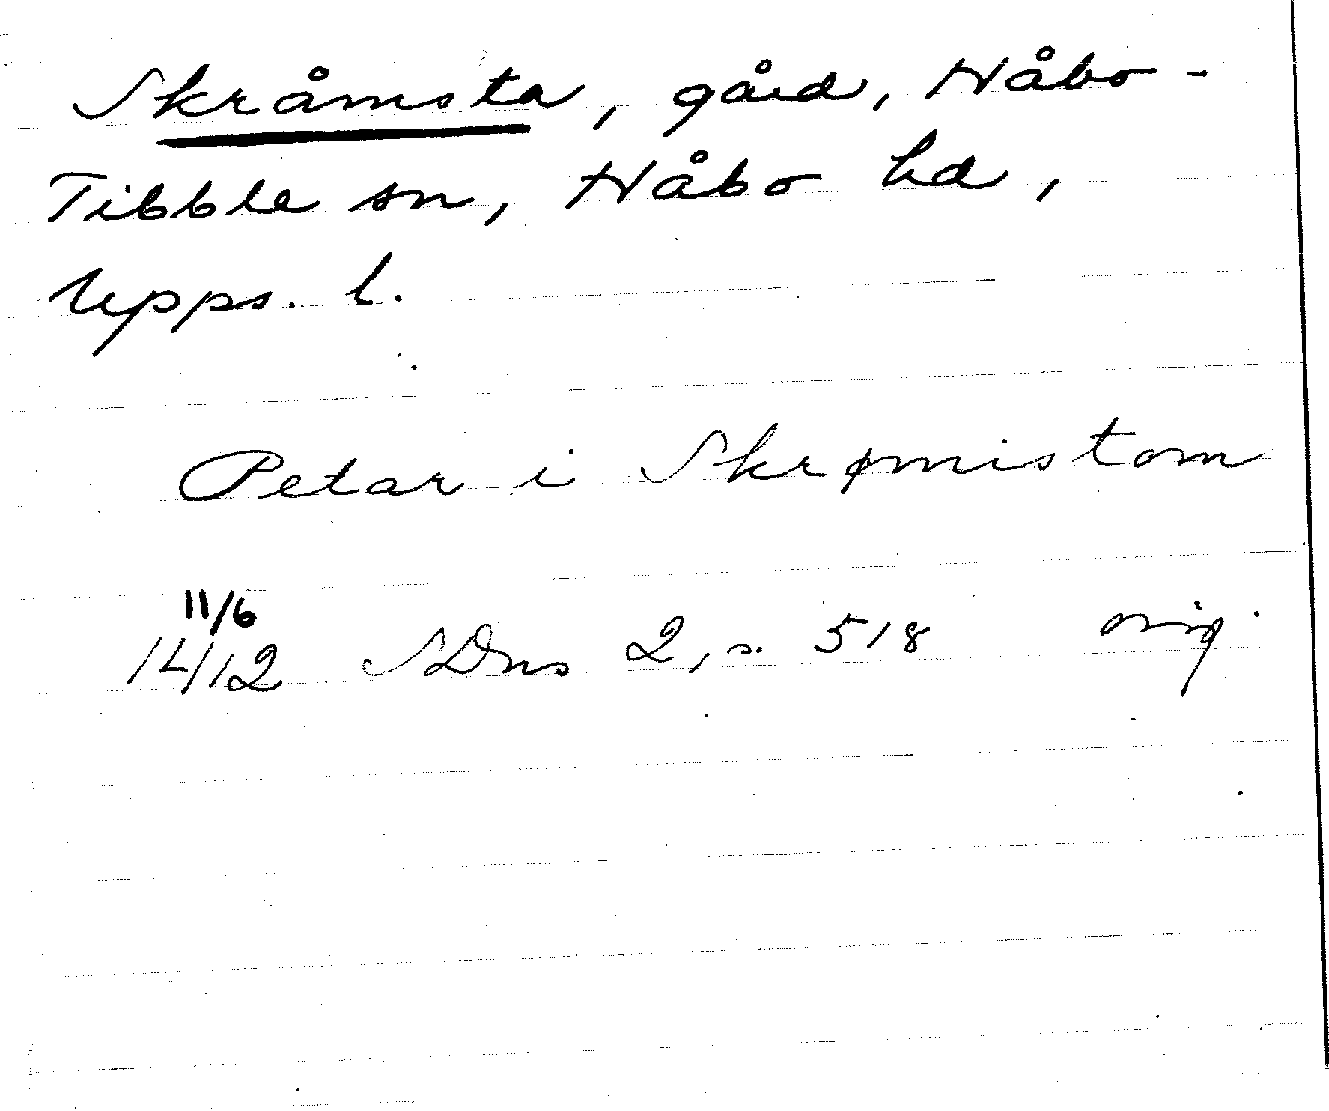 Skråmsta, gård, Håbo-
Tibble sn, Håbo hd,
Upps. l.
Petar i Skrømistom
11/6
1412 SDns 2, s. 518 orig.